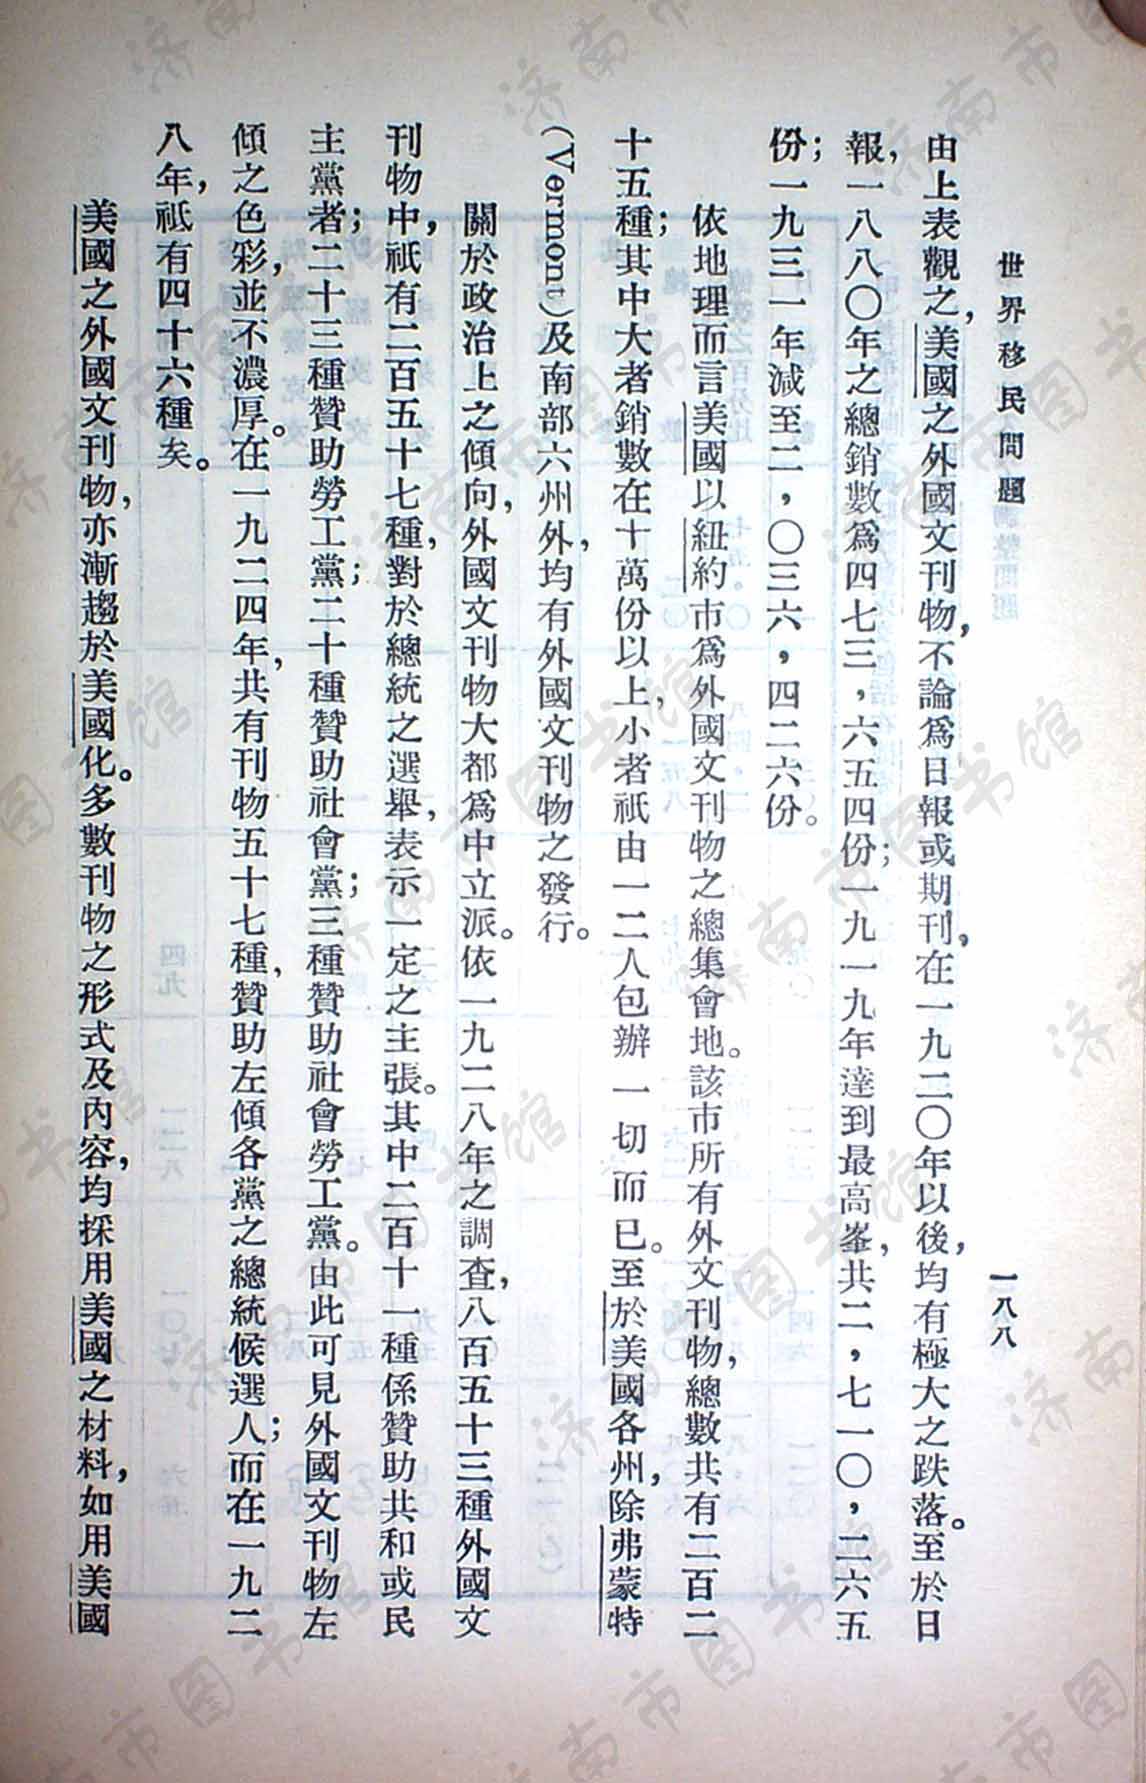 世界移民問題
一八八
由上表觀之，美國之外國文刊物，不論爲日報或期刊，在一九二〇年以後，均有極大之跌落。至於日
報，一八八〇年之總銷數爲四七三，六五四份；一九一九年達到最高峯，共二，七一〇，二六五
份；一九三一年減至二，〇三六，四二六份。
依地理而言美國以紐約市爲外國文刊物之總集會地。該市所有外文刊物，總數共有二百二
十五種；其中大者銷數在十萬份以上，小者祇由一二人包辦一切而已。至於美國各州，除弗蒙特
(Vermont)及南部六州外，均有外國文刊物之發行。
關於政治上之傾向，外國文刊物大都爲中立派。依一九二八年之調查，八百五十三種外國文
刊物中，祇有二百五十七種，對於總統之選舉，表示一定之主張。其中二百十一種係贊助共和或民
主黨者；二十三種贊助勞工黨；二十種贊助社會黨；三種贊助社會勞工黨。由此可見外國文刊物左
傾之色彩，並不濃厚。在一九二四年，共有刊物五十七種，贊助左傾各黨之總統候選人；而在一九二
八年，祇有四十六種矣。
美國之外國文刊物，亦漸趨於美國化。多數刊物之形式及內容，均採用美國之材料，如用美國
济南市图书馆